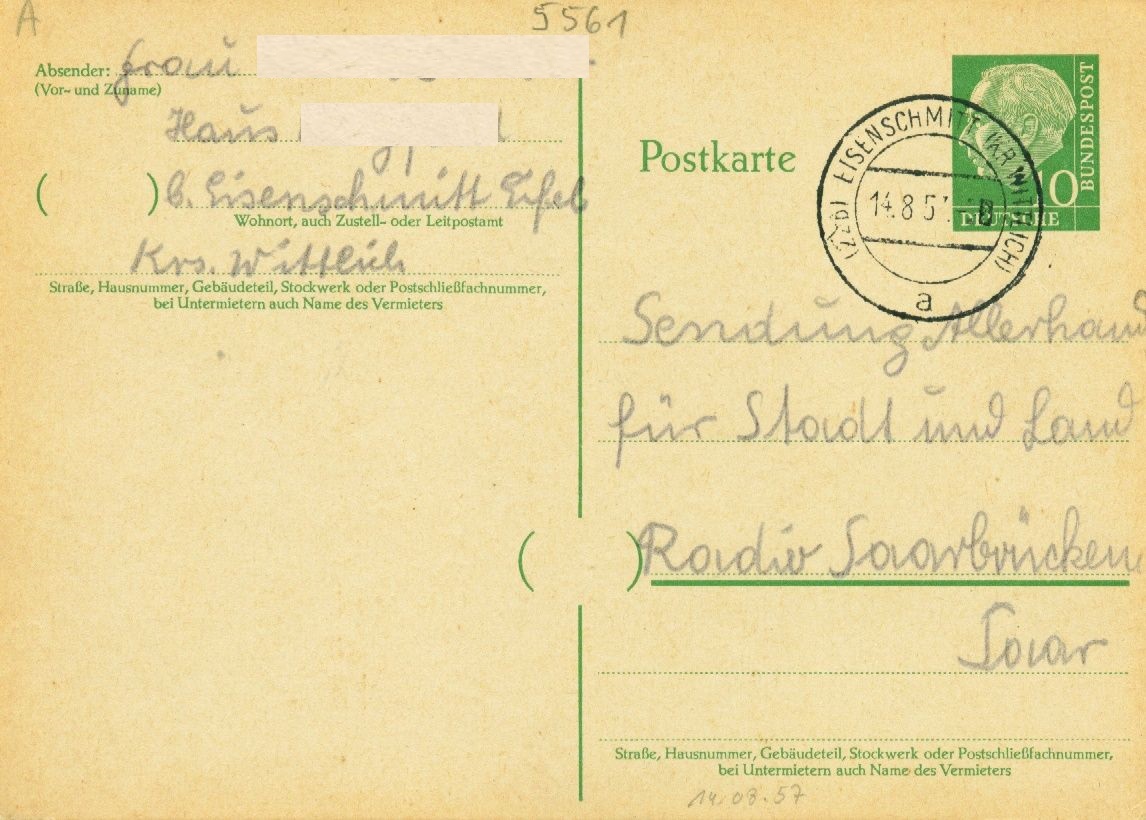 A
5561
Absender: Frau
(Vor- und Zuname)
Haus
( ) b. Eisenschmitt Eifel
Wohnort, auch Zustell- oder Leitpostamt
Krs. Wittlich
Straße, Hausnummer, Gebäudeteil, Stockwerk oder Postschließfachnummer,
bei Untermietern auch Name des Vermieters
Postkarte
10
DEUTSCHE
BUNDESPOST
(22b) EISENSCHMITT (KR WITTLICH)
14.8.57
a
Sendung Allerhand
für Stadt und Land
( ) Radio Saarbrücken
Saar
Straße, Hausnummer, Gebäudeteil, Stockwerk oder Postschließfachnummer,
bei Untermietern auch Name des Vermieters
14.08.57